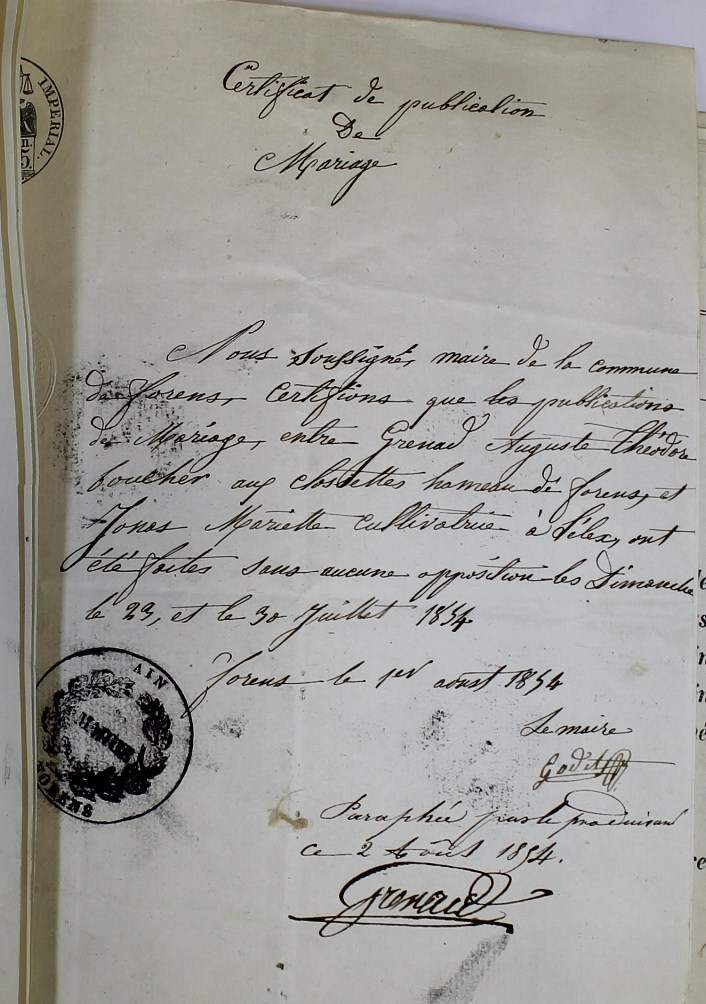 IMPERIAL.
Certificat de publication
De
Mariage
Nous soussigné, maire de la commune
de forens, certifions que les publications
de Mariage, entre Grenad Auguste Théodore
boucher aux closettes hameau de forens, et
Jonas Mariette cultivatrice à Lélex, ont
été faites sans aucune opposition les Dimanche
le 23, et le 30 Juillet 1854
forens le 1er aoust 1854
Le maire
AIN
MAIRIE
FORENS
Paraphée par le produisant
ce 2 Août 1854.
Grenad